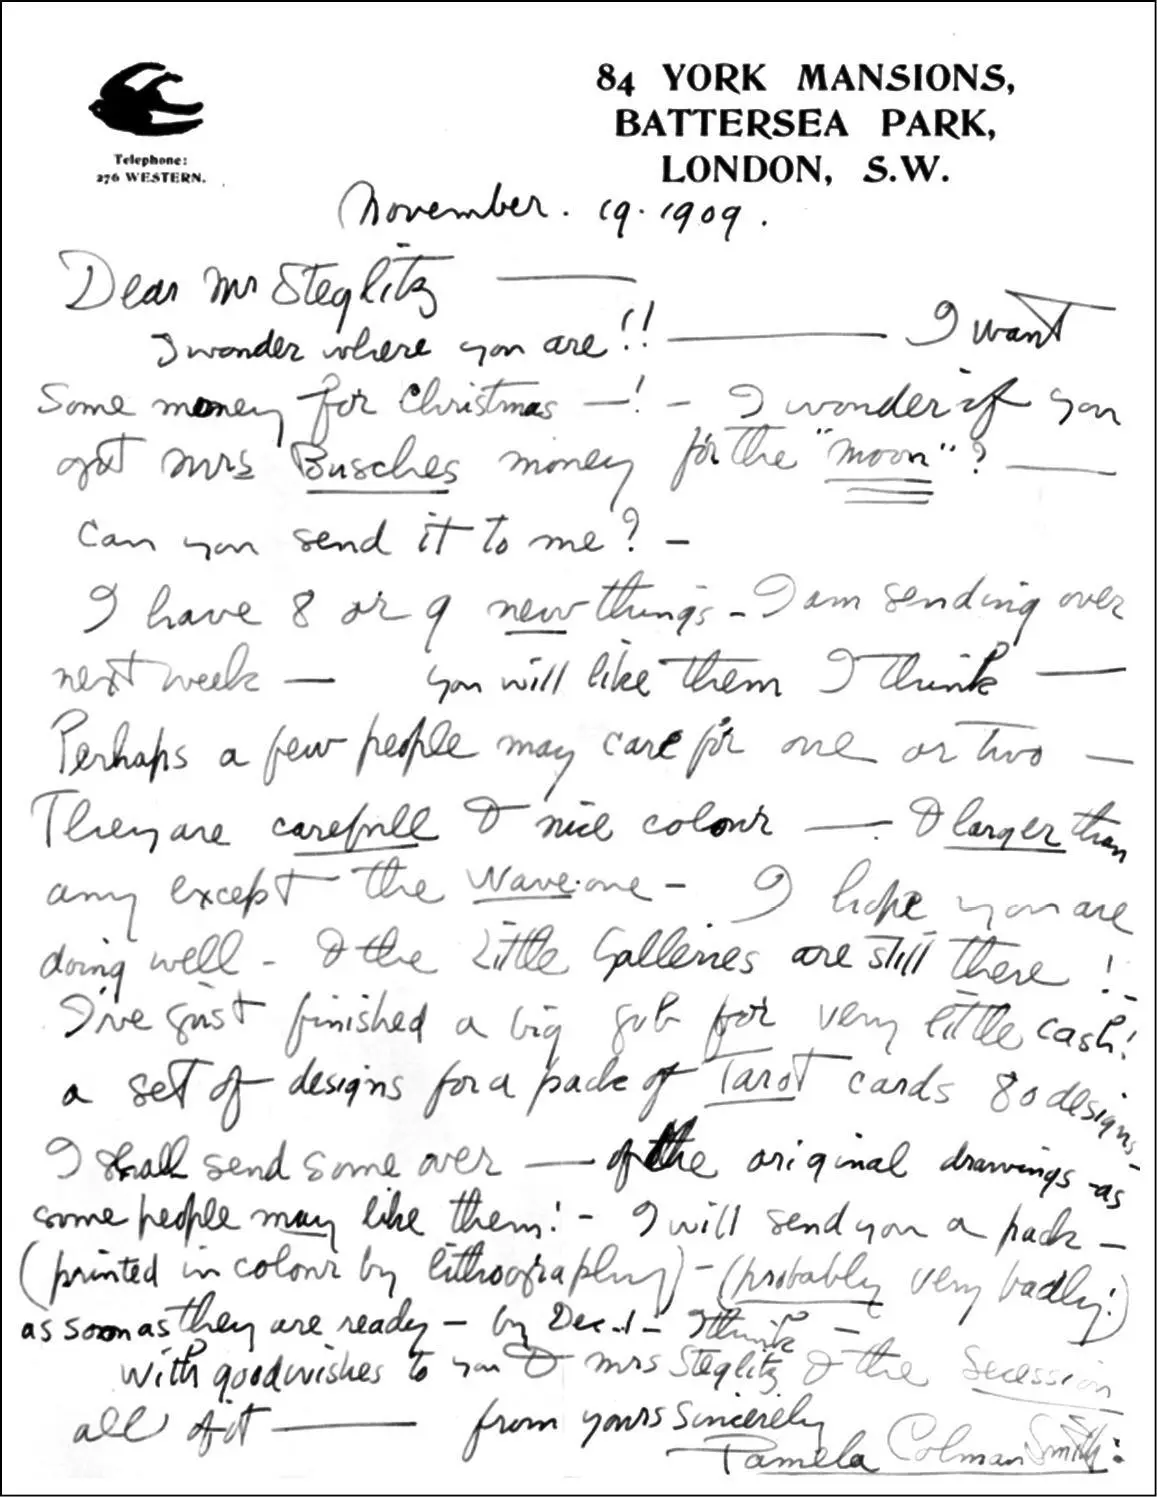 84 YORK MANSIONS,
BATTERSEA PARK,
LONDON, S.W.
Telephone:
276 WESTERN.
November. 19. 1909.
Dear Mr Steglitz ———
I wonder where you are!! ——— I want
Some money for Christmas —! - I wonder if you
got Mrs Busches money for the "moon"? ———
Can you send it to me? —
I have 8 or 9 new things - I am sending over
next week — you will like them I think —
Perhaps a few people may care for one or two —
They are carefull & nice colour — & larger than
any except the Wave one - I hope you are
doing well - & the Little Galleries are still there!
I've just finished a big job for very little cash!
a set of designs for a pack of Tarot cards 80 designs.
I shall send some over — of the original drawings - as
some people may like them! - I will send you a pack —
(printed in colour by lithography) - (probably very badly!)
as soon as they are ready — by Dec. 1 - I think —
With good wishes to you & Mrs Steglitz & the Secession
all of it ——— from yours sincerely
Pamela Colman Smith: